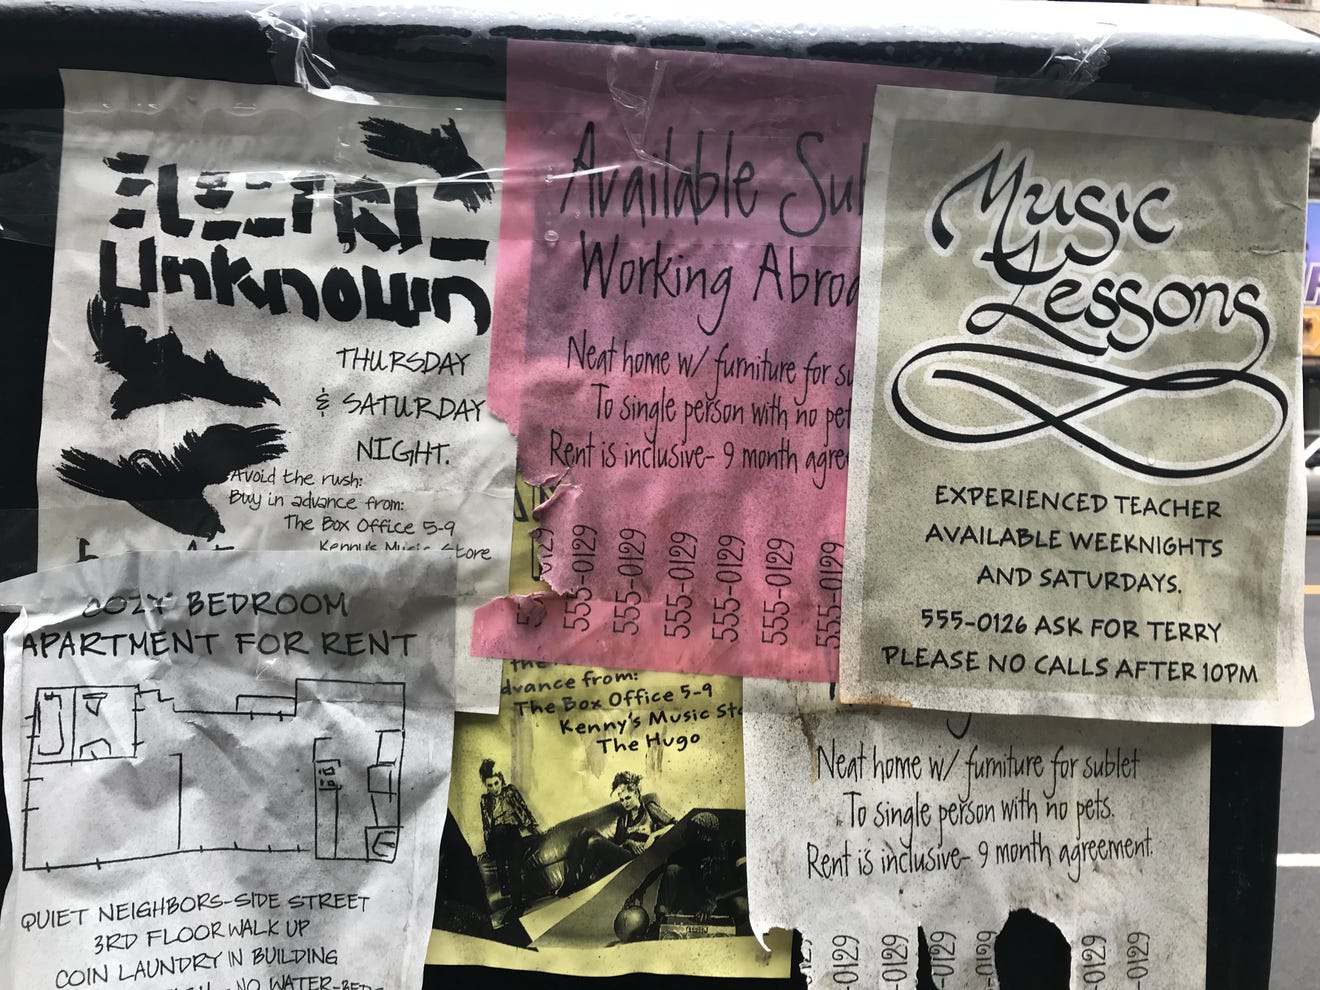 ELECTRIC
Unknown
THURSDAY
& SATURDAY
NIGHT.
Avoid the rush:
Buy in advance from:
The Box Office 5-9
Kenny's Music Store
Available Sul
Working Abroa
Neat home w/ furniture for su
To single person with no pet
Rent is inclusive- 9 month agree
0129
555-0129
555-0129
555-0129
555-0129
555-0129
555-0129
Music
Lessons
EXPERIENCED TEACHER
AVAILABLE WEEKNIGHTS
AND SATURDAYS.
555-0126 ASK FOR TERRY
PLEASE NO CALLS AFTER 10PM
COZY BEDROOM
APARTMENT FOR RENT
QUIET NEIGHBORS-SIDE STREET
3RD FLOOR WALK UP
COIN LAUNDRY IN BUILDING
NO WATER-BEDS
the
dvance from:
The Box Office 5-9
Kenny's Music Sto
The Hugo
Neat home w/ furniture for sublet
To single person with no pets.
Rent is inclusive- 9 month agreement.
0129
-0129
-0129
-0129
-0129
-0129
-0129